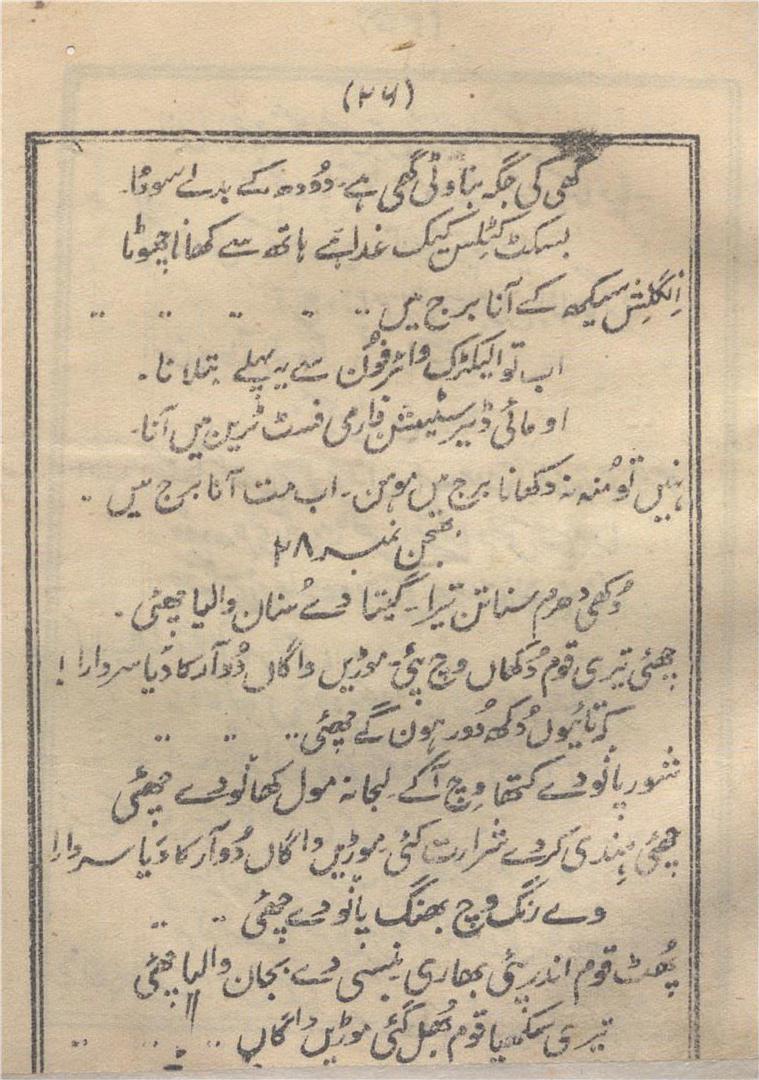 (۲۶)
گھی کی جگہ بناوٹی گھی ہے۔ دُودھ کے بدلے سوڈا۔
بسکٹ کٹلس کیک غذا ہے ہاتھ سے کھانا چھوٹا
اِنگلِش سیکھ کے آنا برج میں ۔۔ ۔۔ ۔۔ ۔۔ ۔۔
اب تو الیکٹرک وائرفُون سے یہ پہلے بتلانا۔
او مائی ڈئیر سٹیشن فارمی فسٹ ٹرین میں آنا۔
نہیں تو مُنہ نہ دکھانا برج میں موہن۔ اب مت آنا برج میں ۔
بھجن نمبر ۲۸
دُکھی دھرم سناتن تیرا۔ گیتا دے سُنان والیا چھئی ۔
چھئی تیری قوم دُکھاں وچ پئی۔ موڑیں واگاں دُوآرکا دَیا سردارا!
دُکھ دُور ہون گے چھئی ۔۔ ۔۔ ۔۔
شور پانودے کتھا وِچ آکے۔ لجانہ مول کھانودے چھئی
چھئی ہِندی کردے شرارت کئی۔ موڑیں واگاں دُوآرکا دَیا سردارا
وے رنگ وچ بھنگ پانودے چھئی ۔۔ ۔۔
پُھٹ قوم اندر پئی بھاری بنسی دے بجان والیا چھئی
تیری سکھیا قوم بُھل گئی موڑیں واگاں ۔۔ ۔۔ ۔۔